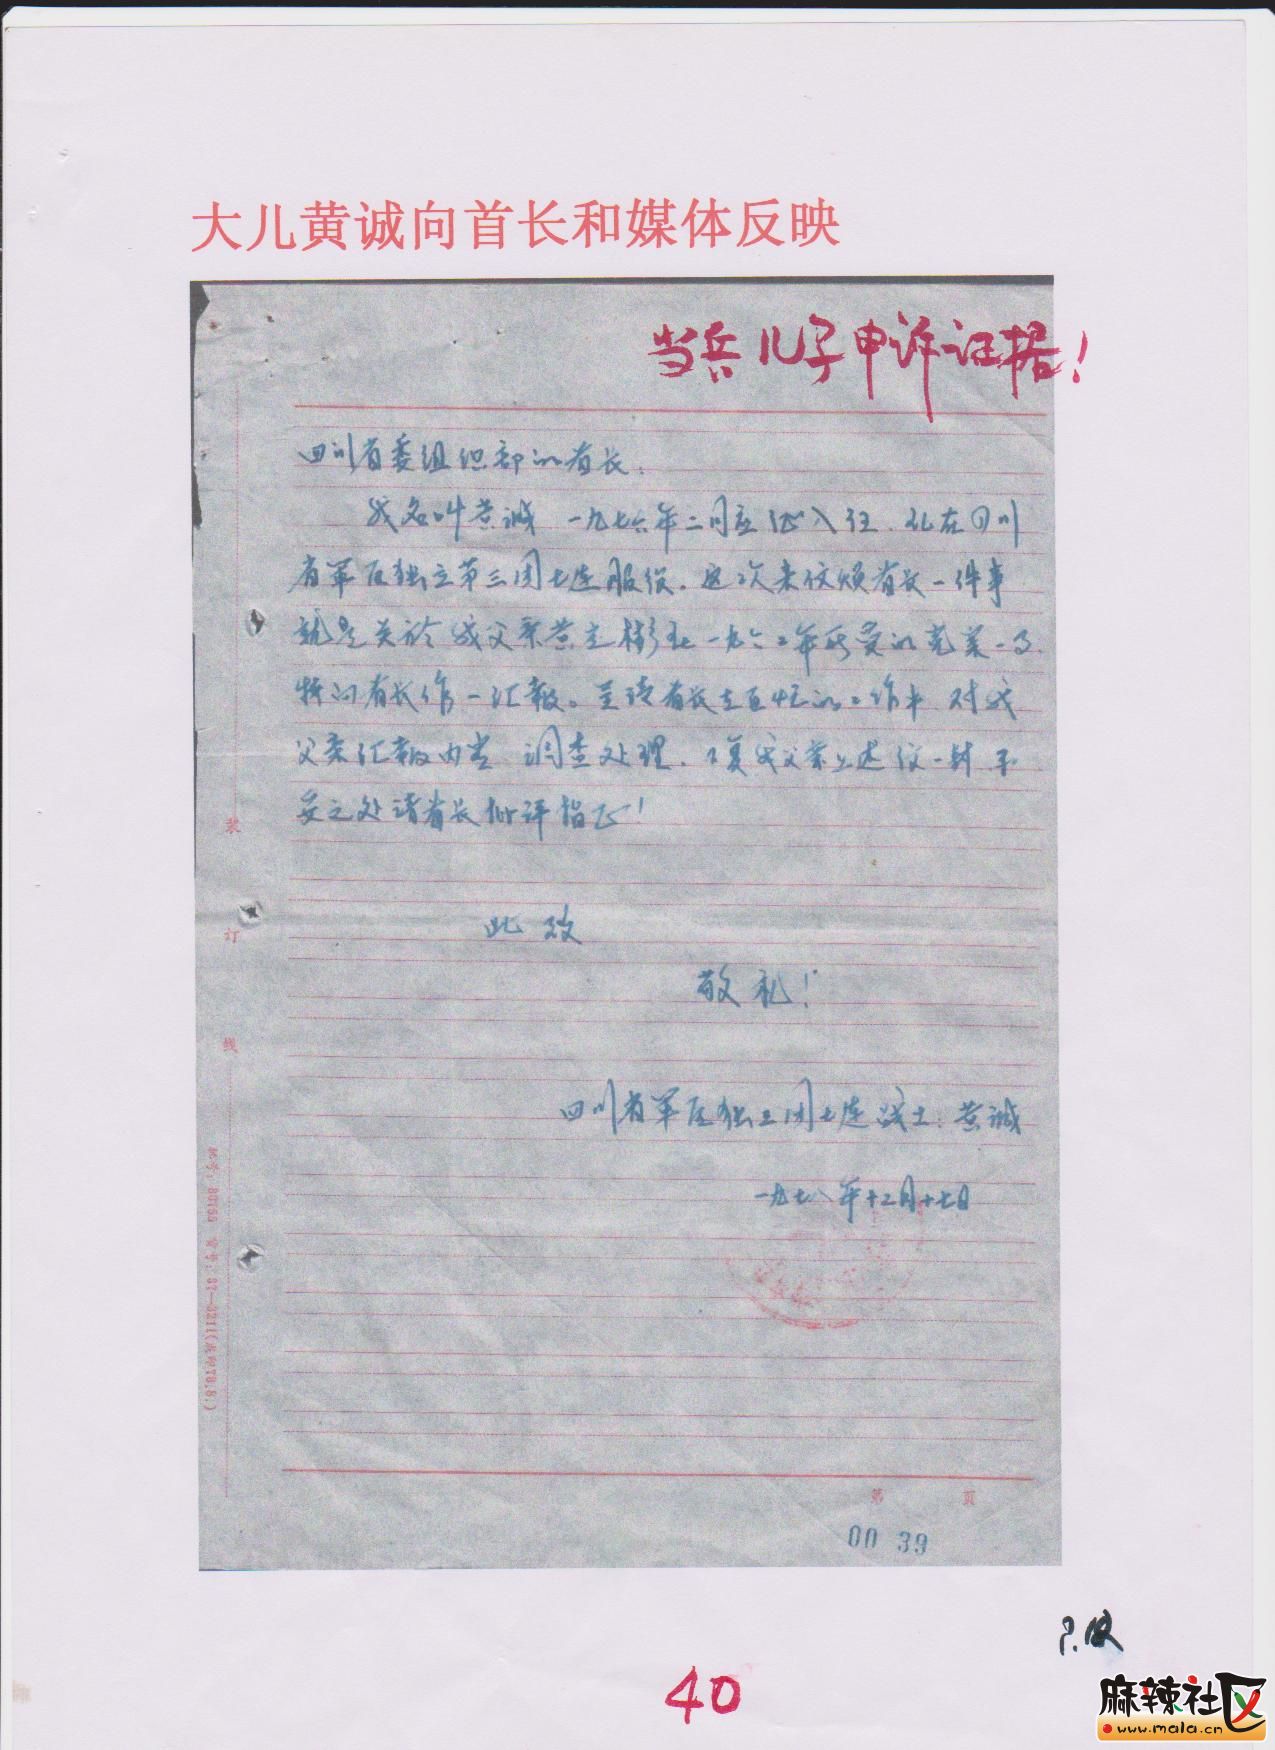 大儿黄诚向首长和媒体反映
当兵儿子申诉证据!
四川省委组织部的首长:
我名叫黄诚 一九七六年二月应征入伍.現在四川
省军区独立第三团七连服役.这次来信烦首长一件事
就是关於我父亲黄志彬在一九六二年所受的冤案一事
特向首长作一汇报。呈请首长在百忙的工作中 对我
父亲汇报内容 调查处理.
妥之处请首长批评指正!
此致
敬礼!
四川省军区独立三团七连战士:黄诚
一九七八年十二月十七日
装
订
线
第 页
00 39
40
麻辣社区
www.mala.cn